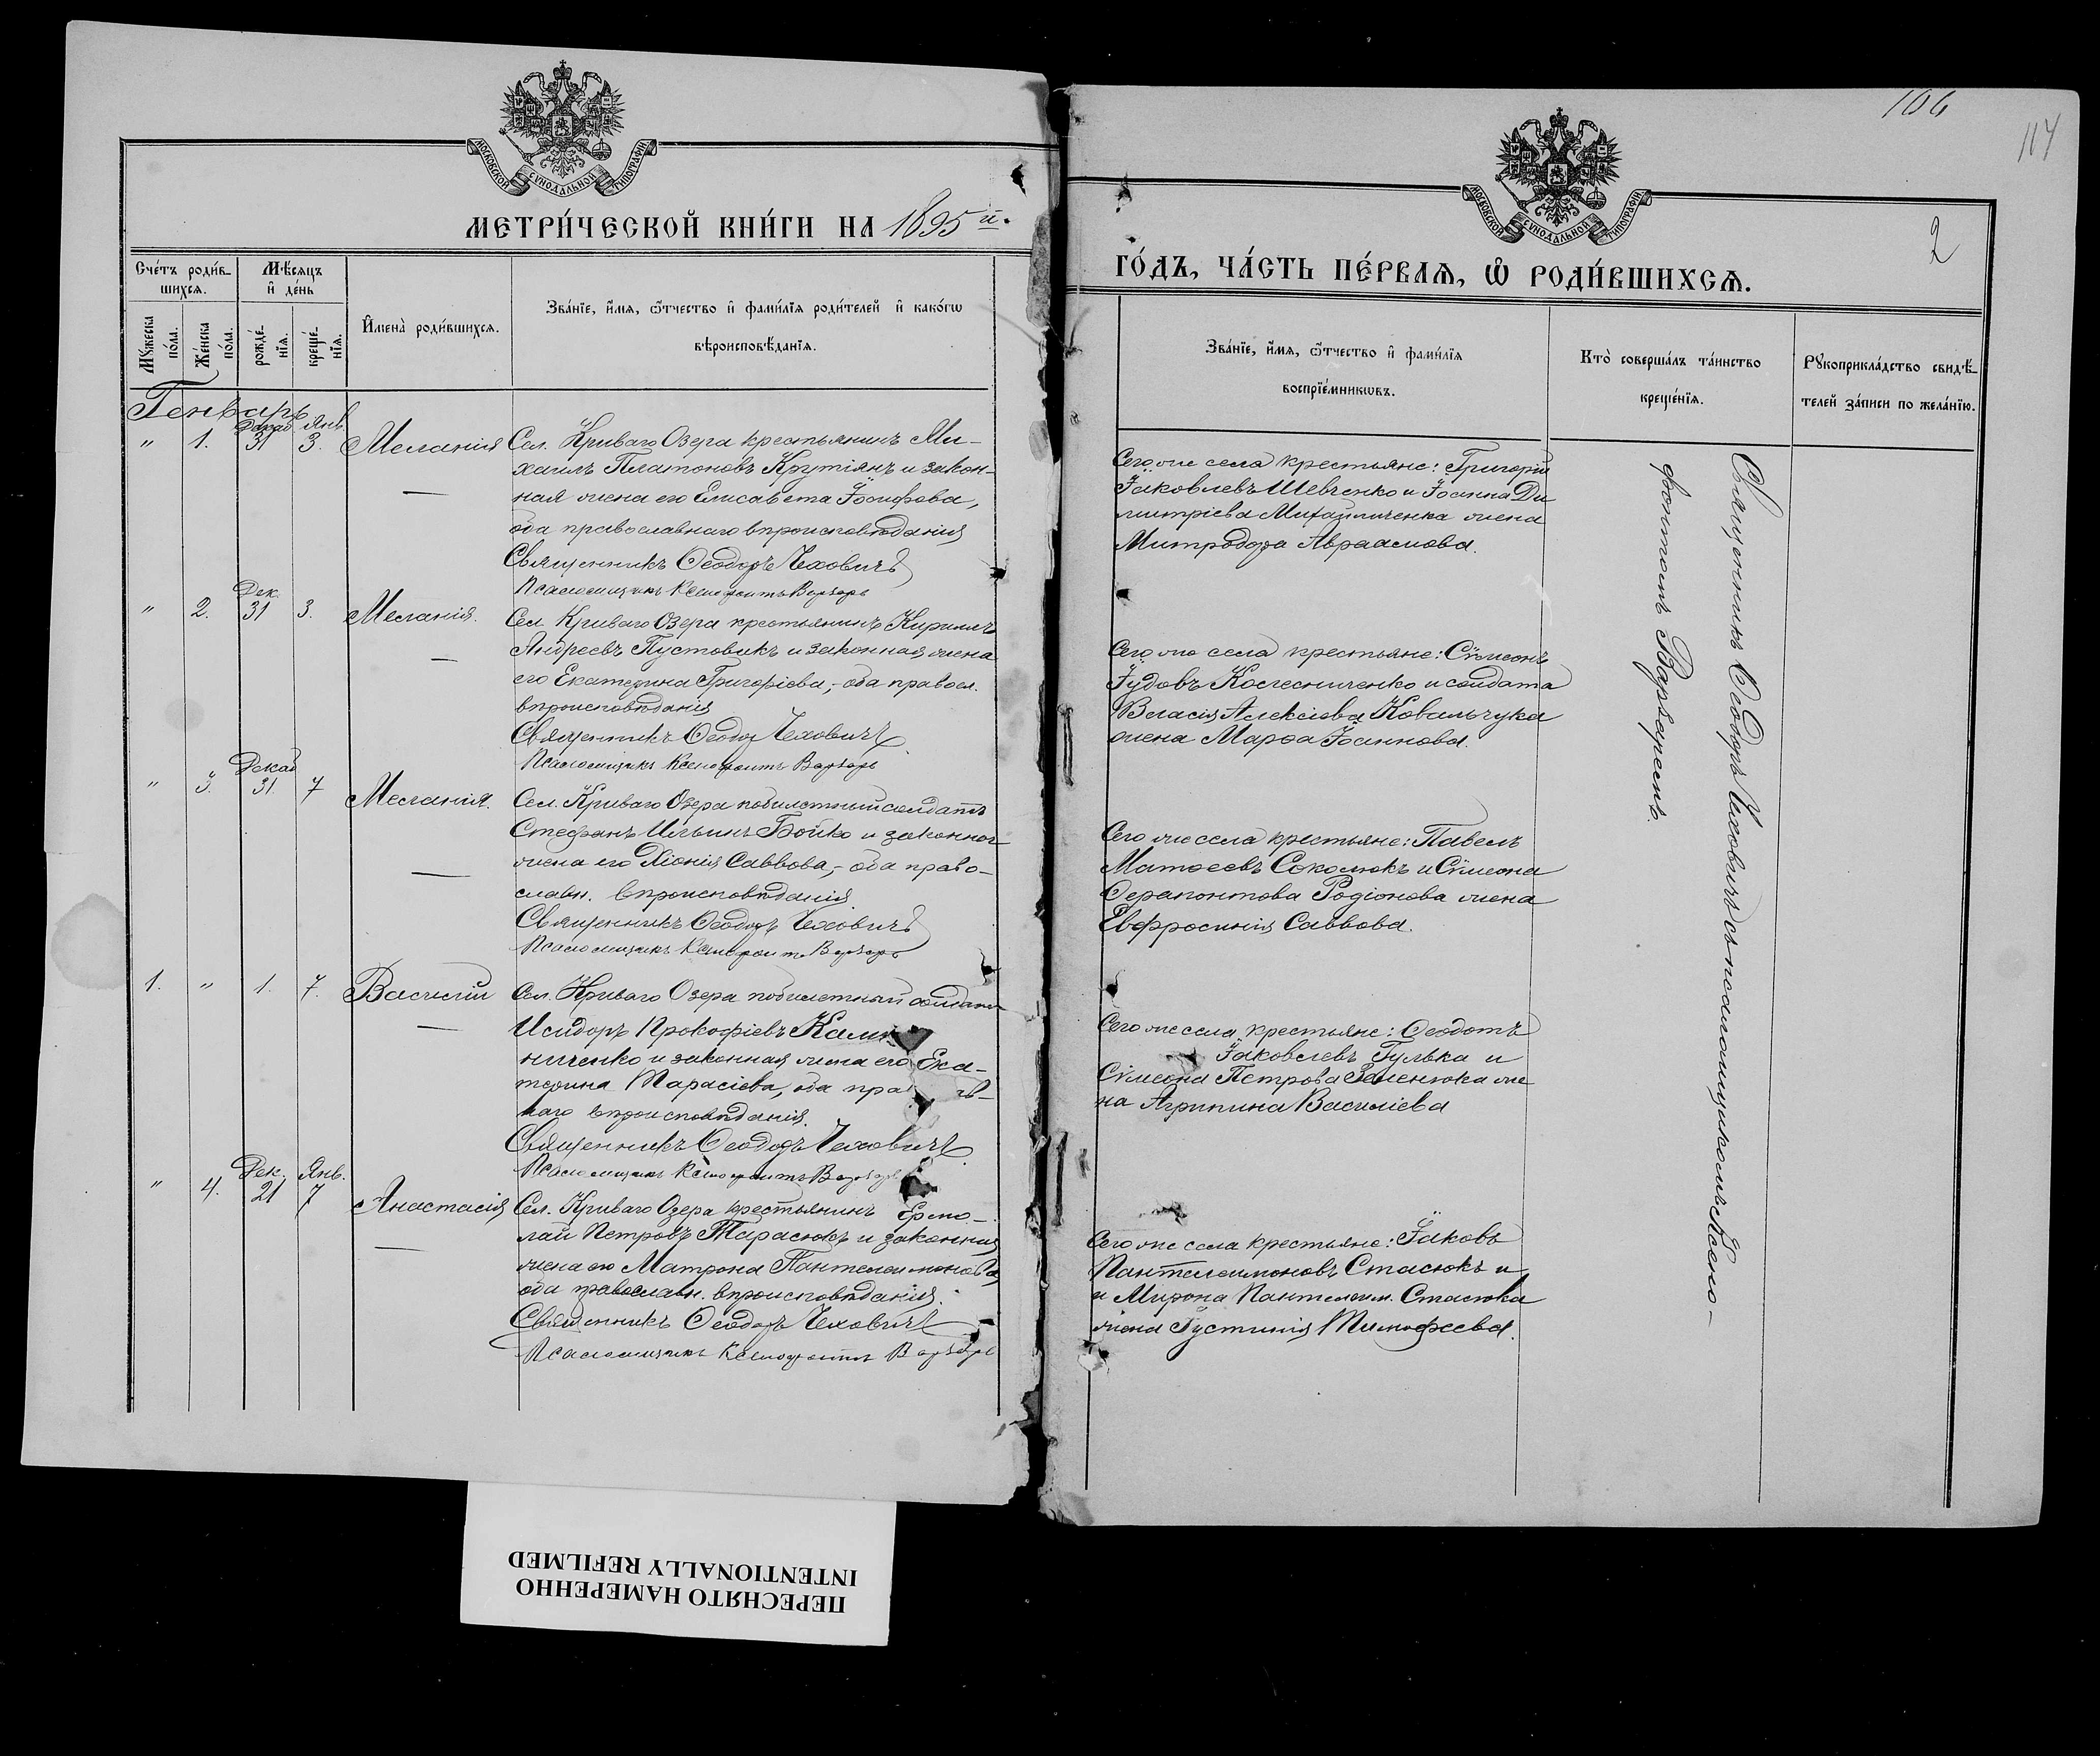 МОСКОВСКОЙ СѴНОДАЛЬНОЙ ТИПОГРАФІИ
МЕТРИ́ЧЕСКОЙ КНИ́ГИ НА 1895 й.
Сче́тъ роди́в-
шихсѧ.
Мѣ́сѧцъ
и҆ де́нь
Мꙋ́жеска по́ла.
Же́нска по́ла.
рожде́-
нїѧ.
креще́-
нїѧ.
И҆мена̀ роди́вшихсѧ.
Зва́нїе, и҆́мѧ, ѻ҆́тчество и҆ фами́лїѧ роди́телей и҆ како́гѡ
вѣроисповѣ́данїѧ.
Генварь
Декаб. Янв.
" 1. 31 3. Меланія Сел. Криваго Озера крестьянинъ Ми-
хаилъ Платоновъ Крутіянъ и закон-
ная жена его Елисавета Іосифова,
оба православнаго вѣроисповѣданія
Священникъ Ѳеодоръ Чеховичъ
Псаломщикъ Ксенофонтъ Варзарь
Дек.
" 2. 31 3. Меланія. Сел. Криваго Озера крестьянинъ Кириллъ
Андреевъ Пустовикъ и законная жена
его Екатерина Григоріева,- оба правосл.
вѣроисповѣданія
Священникъ Ѳеодоръ Чеховичъ
Псаломщикъ Ксенофонтъ Варзарь
Декаб
" 3. 31. 7 Меланія. Сел. Криваго Озера побилетный солдатъ
Стефанъ Ильинъ Бойко и законная
жена его Хіонія Саввова,- оба право-
славн. вѣроисповѣданія
Священникъ Ѳеодоръ Чеховичъ
Псаломщикъ Ксенофонтъ Варзарь
1. " 1. 7. Василій Сел. Криваго Озера побилетный солдатъ
Исидоръ Прокофіевъ
ниченко и законная жена его Ека-
терина Тарасіева, оба
наго вѣроисповѣданія.
Священникъ Ѳеодоръ Чеховичъ
Псаломщикъ Ксенофонтъ
Дек. Янв.
" 4. 21 7 Анастасія Сел. Криваго Озера крестьянинъ Ермо-
лай Петровъ Тарасюкъ и законная
жена его Матрона Пантелеимонова
оба православн. вѣроисповѣданія.
Священникъ Ѳеодоръ Чеховичъ
Псаломщикъ Ксенофонтъ Варзарь
106
114
2
МОСКОВСКОЙ СѴНОДАЛЬНОЙ ТИПОГРАФІИ
ГО́ДЪ, ЧА́СТЬ ПЕ́РВАѦ, Ѽ РОДИ́ВШИХСѦ.
Зва́нїе, и҆́мѧ, ѻ҆́тчество и҆ фами́лїѧ
воспрїе́мникѡвъ.
Кто̀ соверша́лъ та́инство
креще́нїѧ.
Рꙋкоприкла́дство свидѣ́-
телей за́писи по жела́нїю.
Сего же села крестьяне: Григорій
Іаковлевъ Шевченко и Іоанна Ди
митріева Михайличенка жена
Митродора Авраамова.
Сего же села крестьяне: Сѵмеонъ
Іудовъ Колесниченко и солдата
Власія Алексіева Ковальчука
жена Марѳа Іоаннова.
Сего же села крестьяне: Павелъ
Матѳеевъ Соколюкъ и Сѵмеона
Ѳерапонтова Родіонова жена
Евфросинія Саввова.
Сего же села крестьяне: Ѳеодотъ
Іаковлевъ Гулька и
Сѵмеона Петрова Зеленюка же
на Агрипина Василіева
Сего же села крестьяне: Іаковъ
Пантелеимоновъ Стасюкъ и
и Мирона Пантелеим. Стасюка
жена Іустинія Тимофеева.
Священникъ Ѳеодоръ Чеховичъ съ псаломщикомъ Ксено-
фонтомъ Варзаремъ.
ПЕРЕСНЯТО НАМЕРЕННО
INTENTIONALLY REFILMED